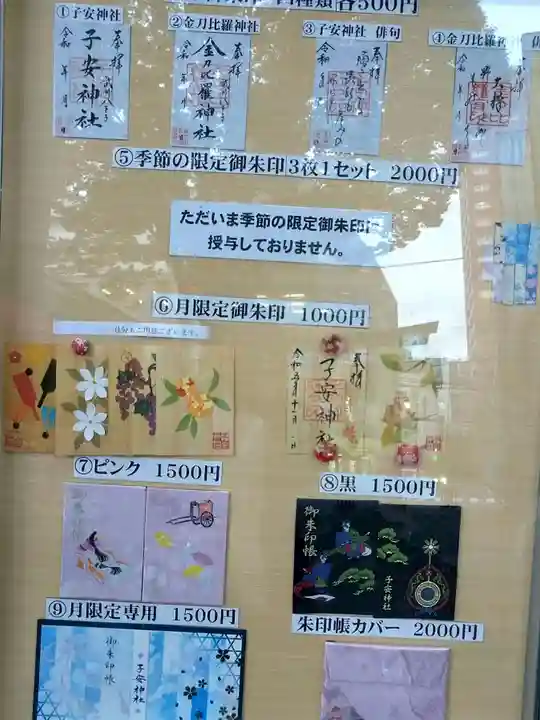 種類各500円
①子安神社
②金刀比羅神社
③子安神社 俳句
④金刀比羅神社 俳
奉拝
子安神社
令和 年 月 日
奉拝
金刀比羅神社
令和
奉拝
⑤季節の限定御朱印3枚1セット 2000円
ただいま季節の限定御朱印は
授与しておりません。
⑥月限定御朱印 1000円
奉拝
子安神社
⑦ピンク 1500円
⑧黒 1500円
御朱印帳
御朱印帳
子安神社
⑨月限定専用 1500円
朱印帳カバー 2000円
御朱印帳
子安神社